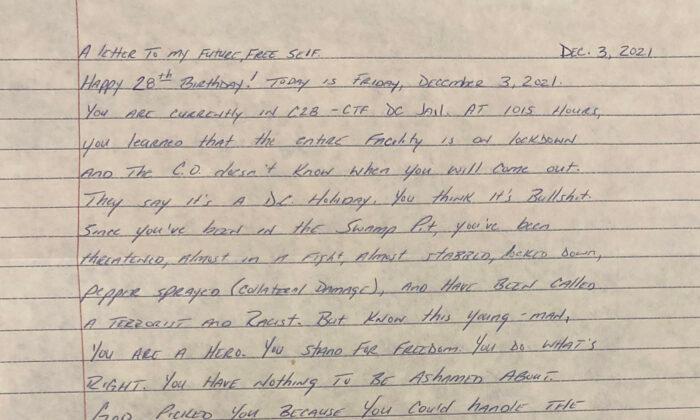 A Letter To my Future, Free Self. Dec. 3, 2021
Happy 28th Birthday! Today is Friday, December 3, 2021.
You are currently in C2B - CTF DC Jail. At 1015 Hours,
you learned that the entire Facility is on lockdown
and the C.O. doesn't know when you will come out.
They say it's a D.C. Holiday. You think it's Bullshit.
Since you've been in the Swamp Pit, you've been
threatened, almost in a fight, almost stabbed, locked down,
pepper sprayed (collateral damage), and have been called
a Terrorist and Racist. But know this young-man,
You are a Hero. You stand for Freedom. You do what's
Right. You have nothing to be ashamed about.
God picked you because you could handle the